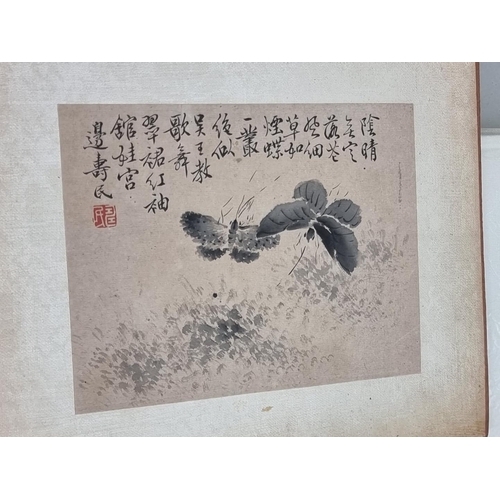 陰晴
無定
落花
風細
草如
煙蝶
一叢
似
吳王教
歌舞
翠裙紅袖
館娃宮
邊壽民